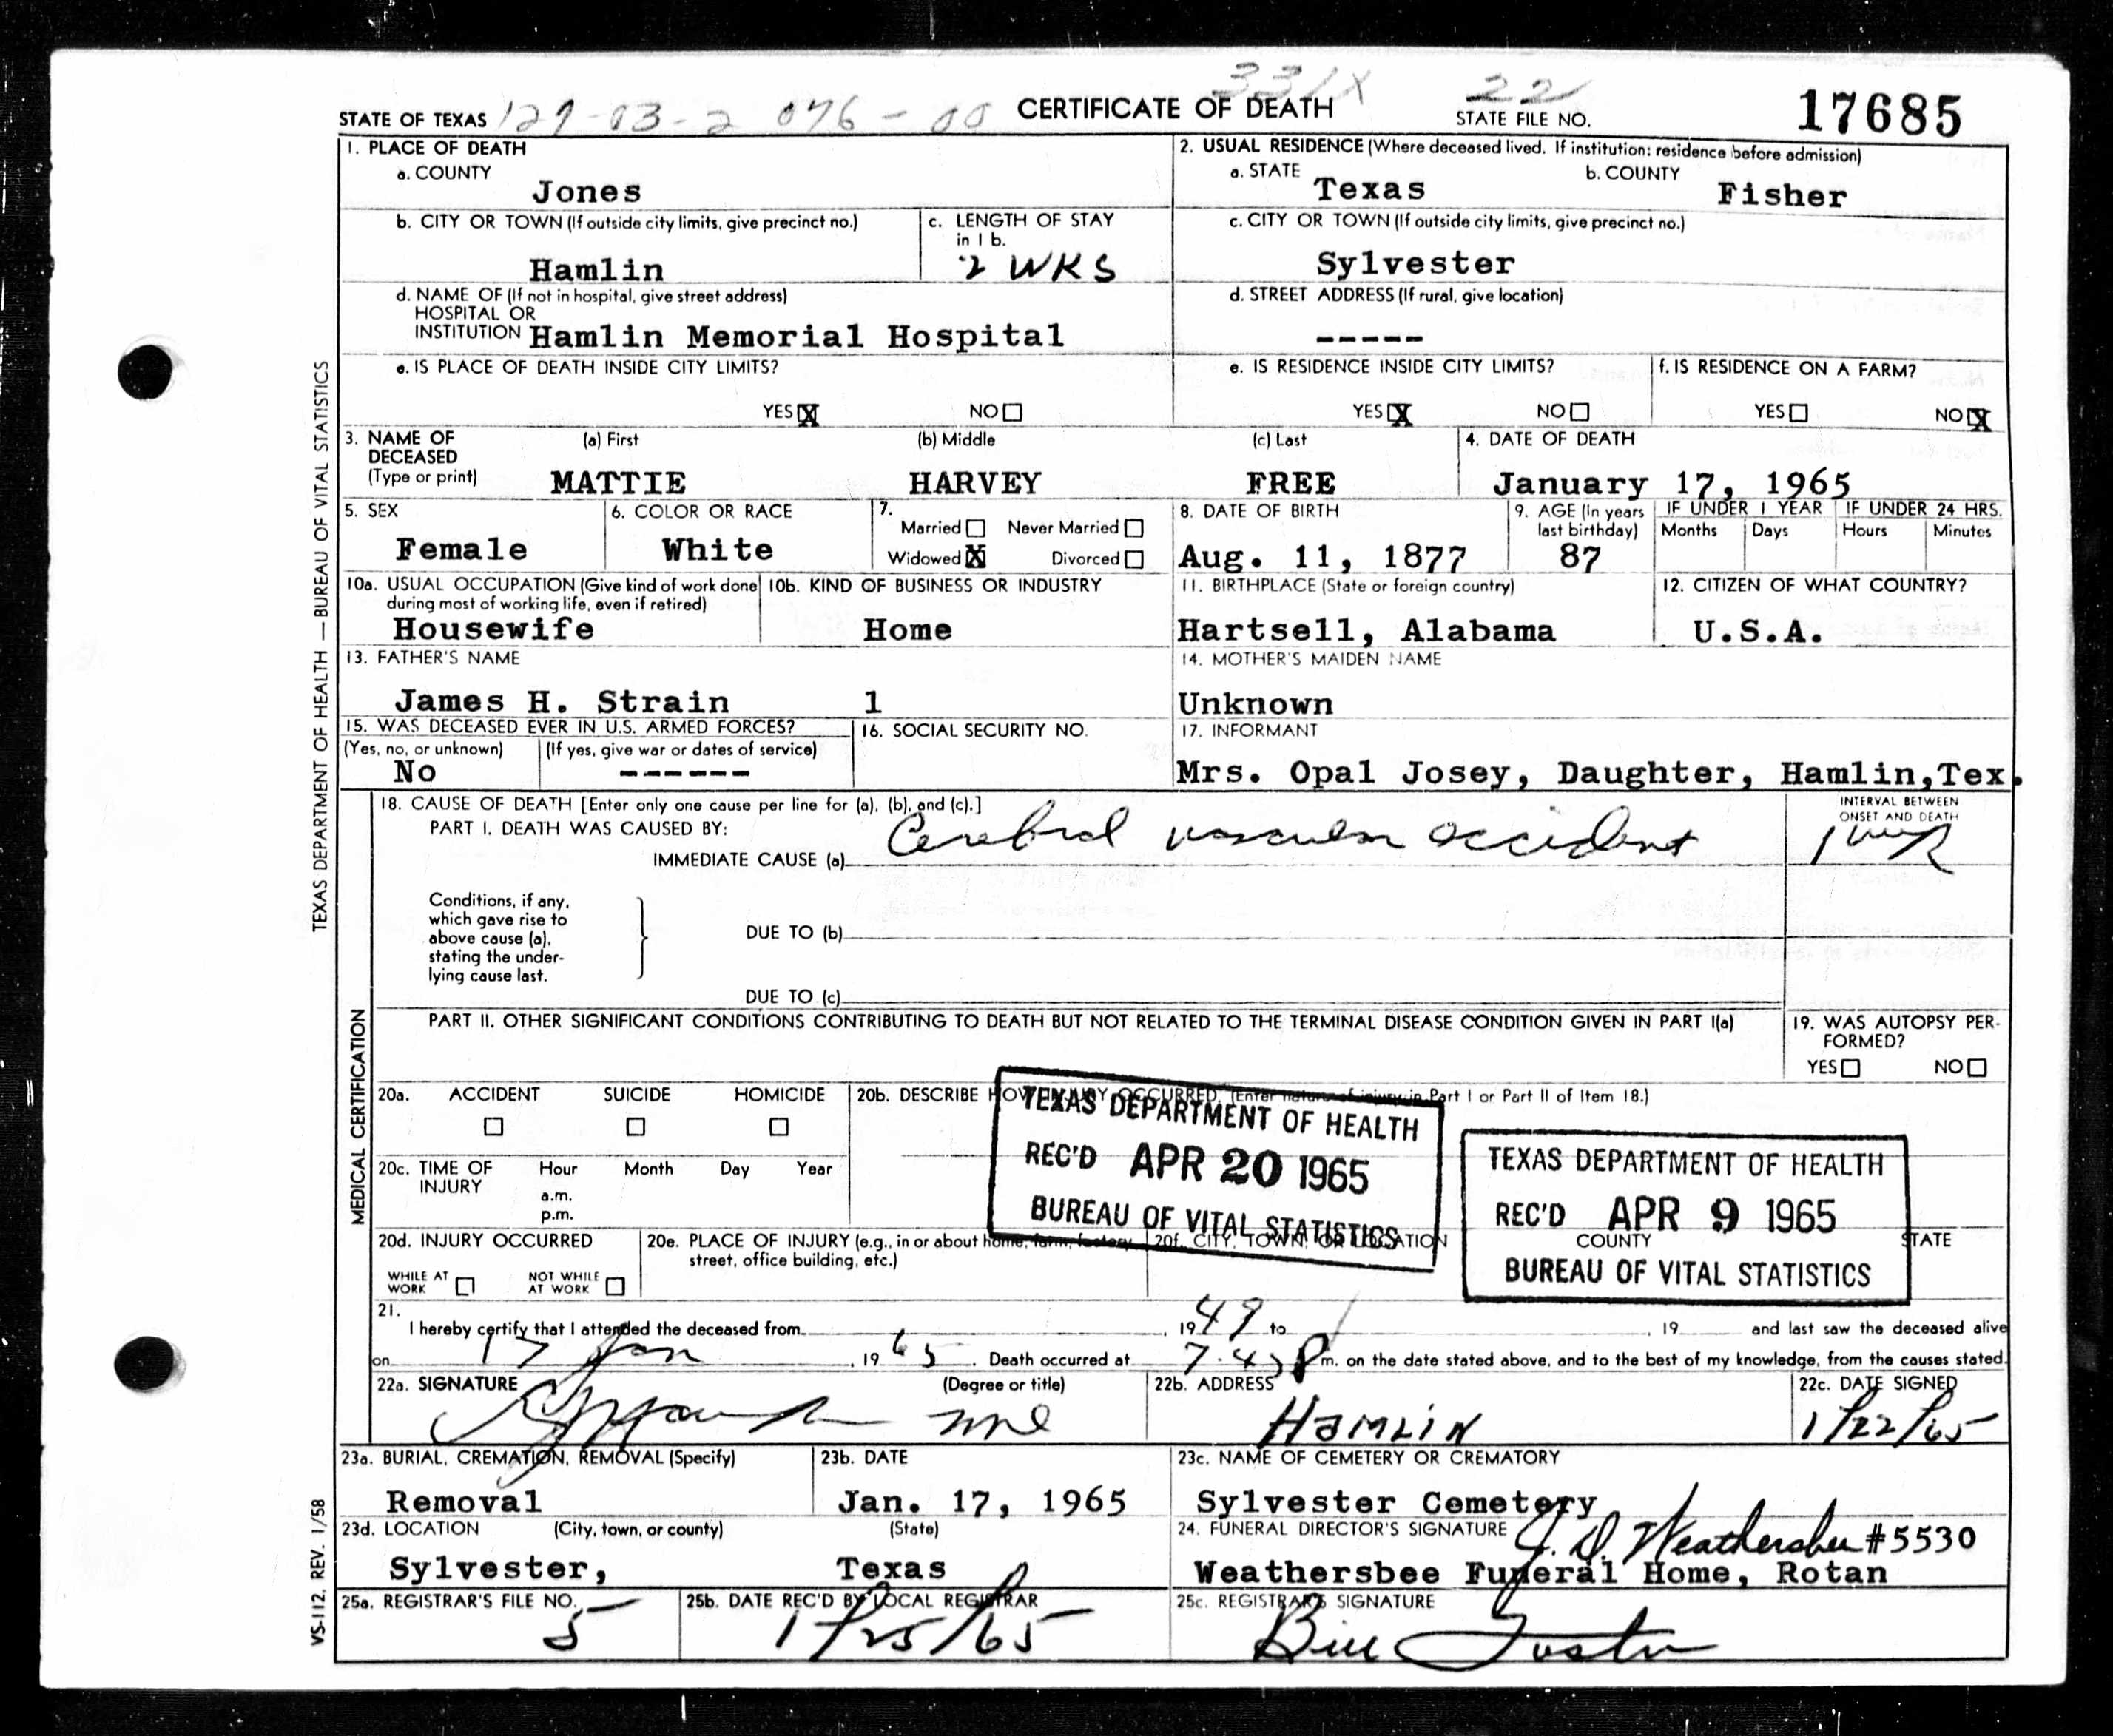 331X 22
STATE OF TEXAS 129-03-2 076-00 CERTIFICATE OF DEATH STATE FILE NO. 17685
1. PLACE OF DEATH
a. COUNTY
Jones
2. USUAL RESIDENCE (Where deceased lived. If institution: residence before admission)
a. STATE
Texas
b. COUNTY
Fisher
b. CITY OR TOWN (If outside city limits, give precinct no.)
Hamlin
c. LENGTH OF STAY
in 1 b.
2 WKS
c. CITY OR TOWN (If outside city limits, give precinct no.)
Sylvester
d. NAME OF (If not in hospital, give street address)
HOSPITAL OR
INSTITUTION Hamlin Memorial Hospital
d. STREET ADDRESS (If rural, give location)
-----
e. IS PLACE OF DEATH INSIDE CITY LIMITS?
YES X NO
e. IS RESIDENCE INSIDE CITY LIMITS?
YES X NO
f. IS RESIDENCE ON A FARM?
YES NO X
3. NAME OF
DECEASED
(Type or print)
(a) First (b) Middle (c) Last
MATTIE HARVEY FREE
4. DATE OF DEATH
January 17, 1965
5. SEX
Female
6. COLOR OR RACE
White
7.
Married Never Married
Widowed X Divorced
8. DATE OF BIRTH
Aug. 11, 1877
9. AGE (In years
last birthday)
87
IF UNDER 1 YEAR
Months Days
IF UNDER 24 HRS.
Hours Minutes
10a. USUAL OCCUPATION (Give kind of work done
during most of working life, even if retired)
Housewife
10b. KIND OF BUSINESS OR INDUSTRY
Home
11. BIRTHPLACE (State or foreign country)
Hartsell, Alabama
12. CITIZEN OF WHAT COUNTRY?
U.S.A.
13. FATHER'S NAME
James H. Strain 1
14. MOTHER'S MAIDEN NAME
Unknown
15. WAS DECEASED EVER IN U.S. ARMED FORCES?
(Yes, no, or unknown) (If yes, give war or dates of service)
No ------
16. SOCIAL SECURITY NO.
17. INFORMANT
Mrs. Opal Josey, Daughter, Hamlin,Tex.
18. CAUSE OF DEATH [Enter only one cause per line for (a), (b), and (c).]
PART I. DEATH WAS CAUSED BY:
IMMEDIATE CAUSE (a) Cerebral vascular accident
INTERVAL BETWEEN
ONSET AND DEATH
Conditions, if any,
which gave rise to
above cause (a),
stating the under-
lying cause last.
DUE TO (b)
DUE TO (c)
PART II. OTHER SIGNIFICANT CONDITIONS CONTRIBUTING TO DEATH BUT NOT RELATED TO THE TERMINAL DISEASE CONDITION GIVEN IN PART I(a)
19. WAS AUTOPSY PER-
FORMED?
YES NO
20a. ACCIDENT SUICIDE HOMICIDE
20b. DESCRIBE HOW INJURY OCCURRED. (Enter nature of injury in Part I or Part II of Item 18.)
20c. TIME OF
INJURY
Hour Month Day Year
a.m.
p.m.
TEXAS DEPARTMENT OF HEALTH
REC'D APR 20 1965
BUREAU OF VITAL STATISTICS
TEXAS DEPARTMENT OF HEALTH
REC'D APR 9 1965
BUREAU OF VITAL STATISTICS
20d. INJURY OCCURRED
WHILE AT
WORK
NOT WHILE
AT WORK
20e. PLACE OF INJURY (e.g., in or about home, farm, factory,
street, office building, etc.)
20f. CITY, TOWN, OR LOCATION COUNTY STATE
21.
I hereby certify that I attended the deceased from , 1949 to , 19 and last saw the deceased alive
on 17 Jan , 1965. Death occurred at P m. on the date stated above, and to the best of my knowledge, from the causes stated.
22a. SIGNATURE (Degree or title)
22b. ADDRESS
HAMLIN
22c. DATE SIGNED
1/22/65
23a. BURIAL, CREMATION, REMOVAL (Specify)
Removal
23b. DATE
Jan. 17, 1965
23c. NAME OF CEMETERY OR CREMATORY
Sylvester Cemetery
23d. LOCATION (City, town, or county) (State)
Sylvester, Texas
24. FUNERAL DIRECTOR'S SIGNATURE J. D. Weathersbee #5530
Weathersbee Funeral Home, Rotan
25a. REGISTRAR'S FILE NO.
5
25b. DATE REC'D BY LOCAL REGISTRAR
1/25/65
25c. REGISTRAR'S SIGNATURE
Bill Foster
TEXAS DEPARTMENT OF HEALTH — BUREAU OF VITAL STATISTICS
MEDICAL CERTIFICATION
VS-112. REV. 1/58